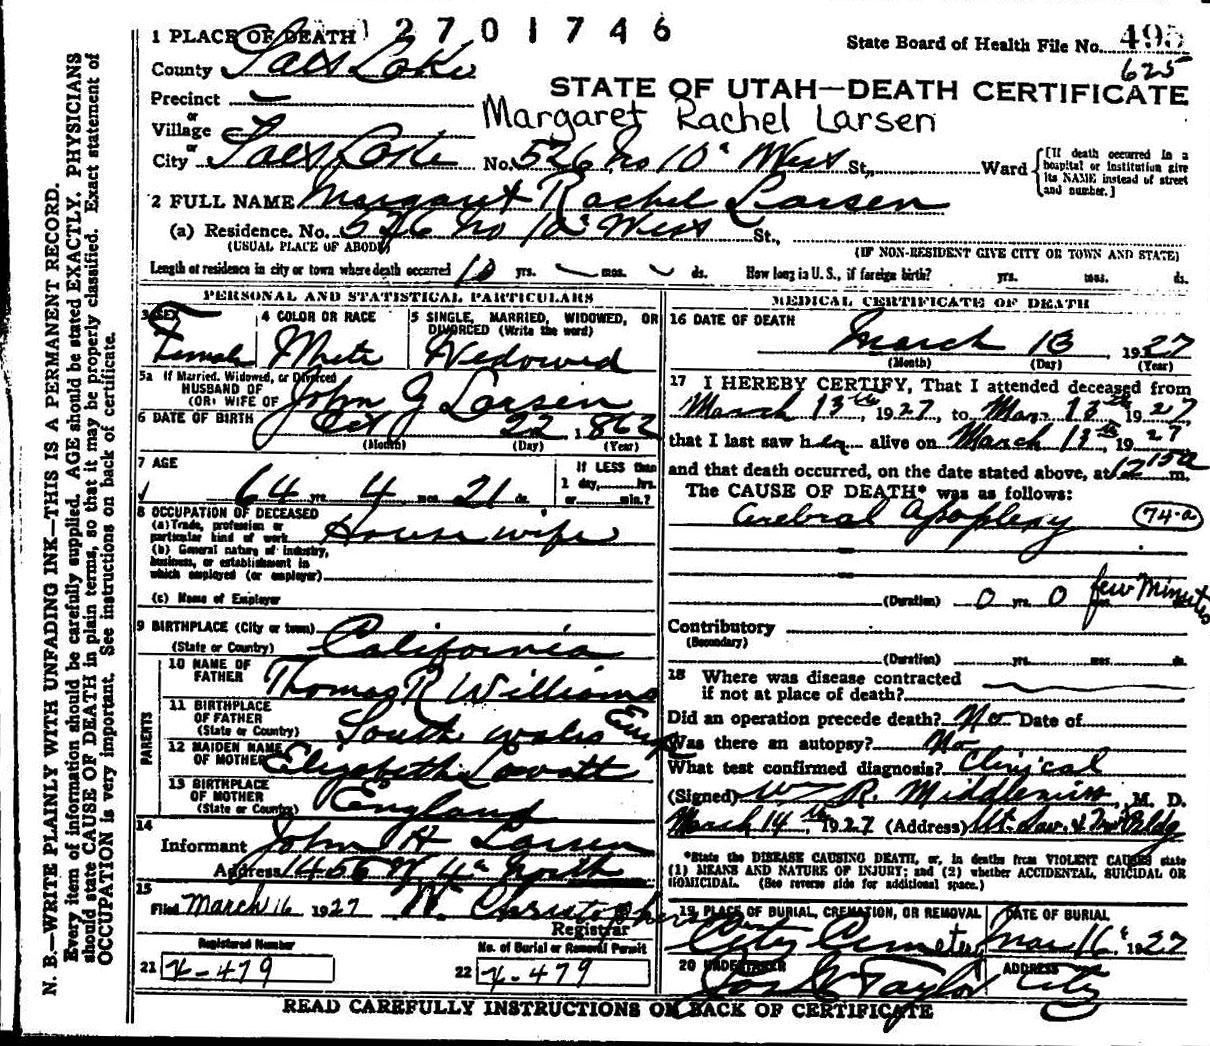 2701746
1 PLACE OF DEATH
State Board of Health File No. 495
625
County Salt Lake
STATE OF UTAH—DEATH CERTIFICATE
Precinct
or
Village
Margaret Rachel Larsen
or
City Salt Lake No. 526 No 10" West St., Ward
[If death occurred in a
hospital or institution give
its NAME instead of street
and number.]
2 FULL NAME Margaret Rachel Larsen
(a) Residence. No. 526 No 10" West St.,
(USUAL PLACE OF ABODE)
(IF NON-RESIDENT GIVE CITY OR TOWN AND STATE)
Length of residence in city or town where death occurred 10 yrs. mos. ds. How long in U. S., if foreign birth? yrs. mos. ds.
PERSONAL AND STATISTICAL PARTICULARS
3 SEX
Female
4 COLOR OR RACE
White
5 SINGLE, MARRIED, WIDOWED, OR
DIVORCED (Write the word)
Widowed
5a If Married, Widowed, or Divorced
HUSBAND OF
(OR) WIFE OF John G Larsen
6 DATE OF BIRTH Oct 22 1862
(Month) (Day) (Year)
7 AGE
64 yrs. 4 mos. 21 ds.
If LESS than
1 day, hrs.
or min.?
8 OCCUPATION OF DECEASED
(a) Trade, profession or
particular kind of work House wife
(b) General nature of industry,
business, or establishment in
which employed (or employer)
(c) Name of Employer
9 BIRTHPLACE (City or town)
(State or Country) California
PARENTS
10 NAME OF
FATHER Thomas R Williams
11 BIRTHPLACE
OF FATHER
(State or Country) South Wales Eng
12 MAIDEN NAME
OF MOTHER Elizabeth Lovatt
13 BIRTHPLACE
OF MOTHER
(State or Country) England
14
Informant John H Larsen
Address 1456 W 4" North
15
Filed March 16 1927 W. Christopherson
Registrar
Registered Number
21 X-479
No. of Burial or Removal Permit
22 X-479
MEDICAL CERTIFICATE OF DEATH
16 DATE OF DEATH
March 13, 1927
(Month) (Day) (Year)
17 I HEREBY CERTIFY, That I attended deceased from
March 13th, 1927, to Mar. 13th 1927
that I last saw her alive on March 13th, 1927
and that death occurred, on the date stated above, at 12 15a m.
The CAUSE OF DEATH* was as follows:
Cerebral Apoplexy 74-a
(Duration) 0 yrs. 0 few minutes
Contributory
(Secondary)
(Duration) yrs. mos. ds.
18 Where was disease contracted
if not at place of death?
Did an operation precede death? No Date of
Was there an autopsy? No
What test confirmed diagnosis? Clinical
(Signed) Wm R. Middlemiss, M. D.
March 14th, 1927 (Address) Ut. Sav. & Tr. Bldg
*State the DISEASE CAUSING DEATH, or, in deaths from VIOLENT CAUSES state
(1) MEANS AND NATURE OF INJURY; and (2) whether ACCIDENTAL, SUICIDAL OR
HOMICIDAL. (See reverse side for additional space.)
19 PLACE OF BURIAL, CREMATION, OR REMOVAL
City Cemetery
DATE OF BURIAL
Mar 16, 1927
20 UNDERTAKER
Jos Wm Taylor
ADDRESS
City
READ CAREFULLY INSTRUCTIONS ON BACK OF CERTIFICATE
N. B.—WRITE PLAINLY WITH UNFADING INK—THIS IS A PERMANENT RECORD.
Every item of information should be carefully supplied. AGE should be stated EXACTLY. PHYSICIANS
should state CAUSE OF DEATH in plain terms, so that it may be properly classified. Exact statement of
OCCUPATION is very important. See instructions on back of certificate.